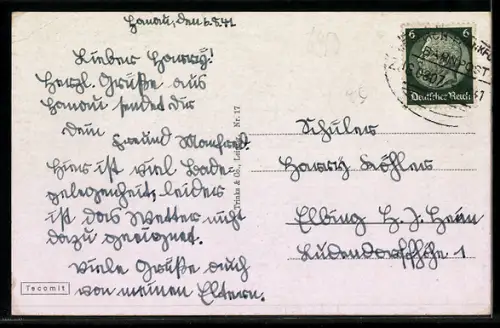 Hanau, den 6.7.41
Lieber Harry!
Herzl. Grüße aus
Hanau sendet dir
dein
Freund Manfred.
Hier ist viel Bade-
gelegenheit, leider
ist das Wetter nicht
dazu geeignet.
Viele Grüße auch
von meinen Eltern.
Tecomit
Trinks & Co., Leipzig Nr. 17
6 6
Deutsches Reich
BAHNPOST
Schüler
Harry Köhler
Elbing H. J. Heim
Ludendorffhöhe 1